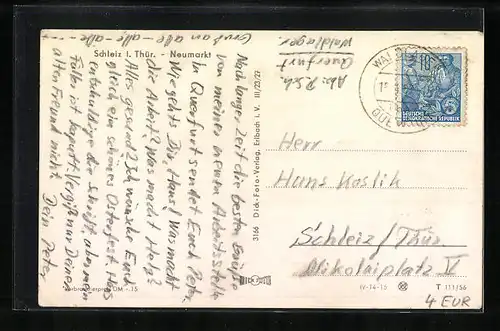 Schleiz i. Thür. - Neumarkt
Gruß an alle - alle - alle - - -
Nach langer Zeit die besten Grüße
von meiner neuen Arbeitsstelle
in Querfurt sendet Euch Peter.
Wie gehts Dir, Hans? Was macht
die Arbeit? Was macht Helga?
Alles gesund? Ich wünsche Euch
gleich ein schönes Osterfest. Hans
entschuldige die Schrift aber mein
Füller ist kaputt. Vergiß nur Deinen
alten Freund nicht. Dein Peter
3166 Dick-Foto-Verlag, Erlbach i. V. III/23/27
Abs. P. Sch.
Querfurt
Waldlager
10
DEUTSCHE
DEMOKRATISCHE REPUBLIK
Herr
Hans Koslik
Schleiz / Thür.
Nikolaiplatz V
IV-14-15
T 111/56
4 EUR